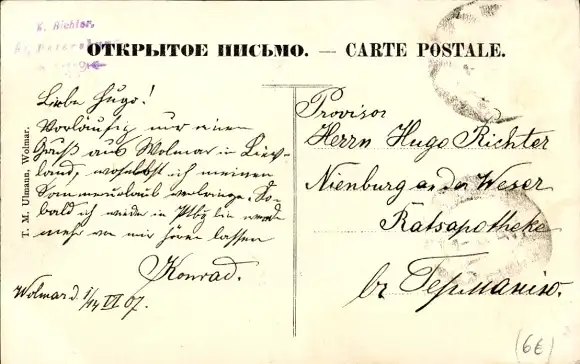 K. Richter,
St. Petersburg
ОТКРЫТОЕ ПИСЬМО. — CARTE POSTALE.
T. M. Ulmann, Wolmar.
Liebe Hugo!
Vorläufig nur einen
Gruß aus Wolmar in Liev-
land, woselbst ich meinen
Sommerurlaub verbringe. So-
bald ich wieder in Ptbg bin werde
mehr von mir hören lassen
Konrad.
Wolmar d. 1/14 VI 07.
Provisor
Herrn Hugo Richter
Nienburg an der Weser
Ratsapotheke
въ Германію.
(6€)